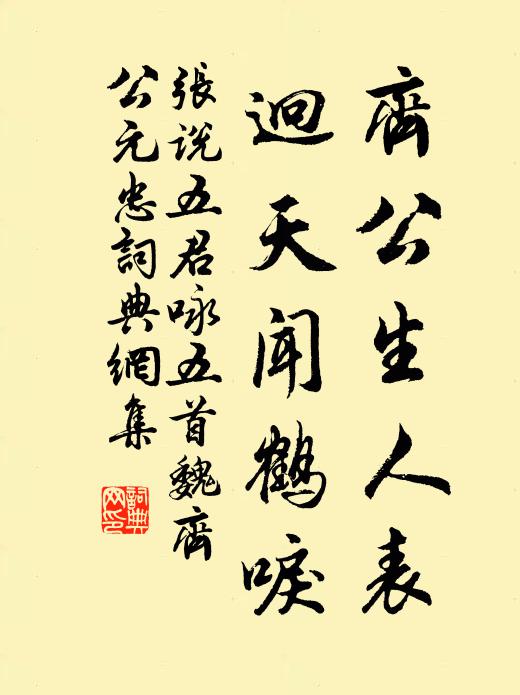 齊公生人表
迥天聞鶴唳
張說五君咏五首魏齊
公元忠詞典網集
詞典網印